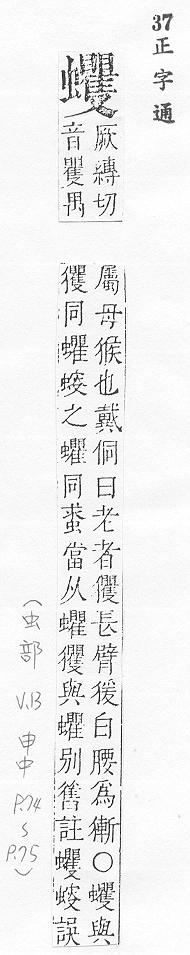 37 正字通
蠼
厥縛切
音矍禺
屬母猴也戴侗曰老者玃長臂猨白腰為獑〇蠼與
玃同蠷螋之蠷同當从蠷玃與蠷別舊註蠼螋誤
(虫部 V.13 申中 P.74 s P.75)